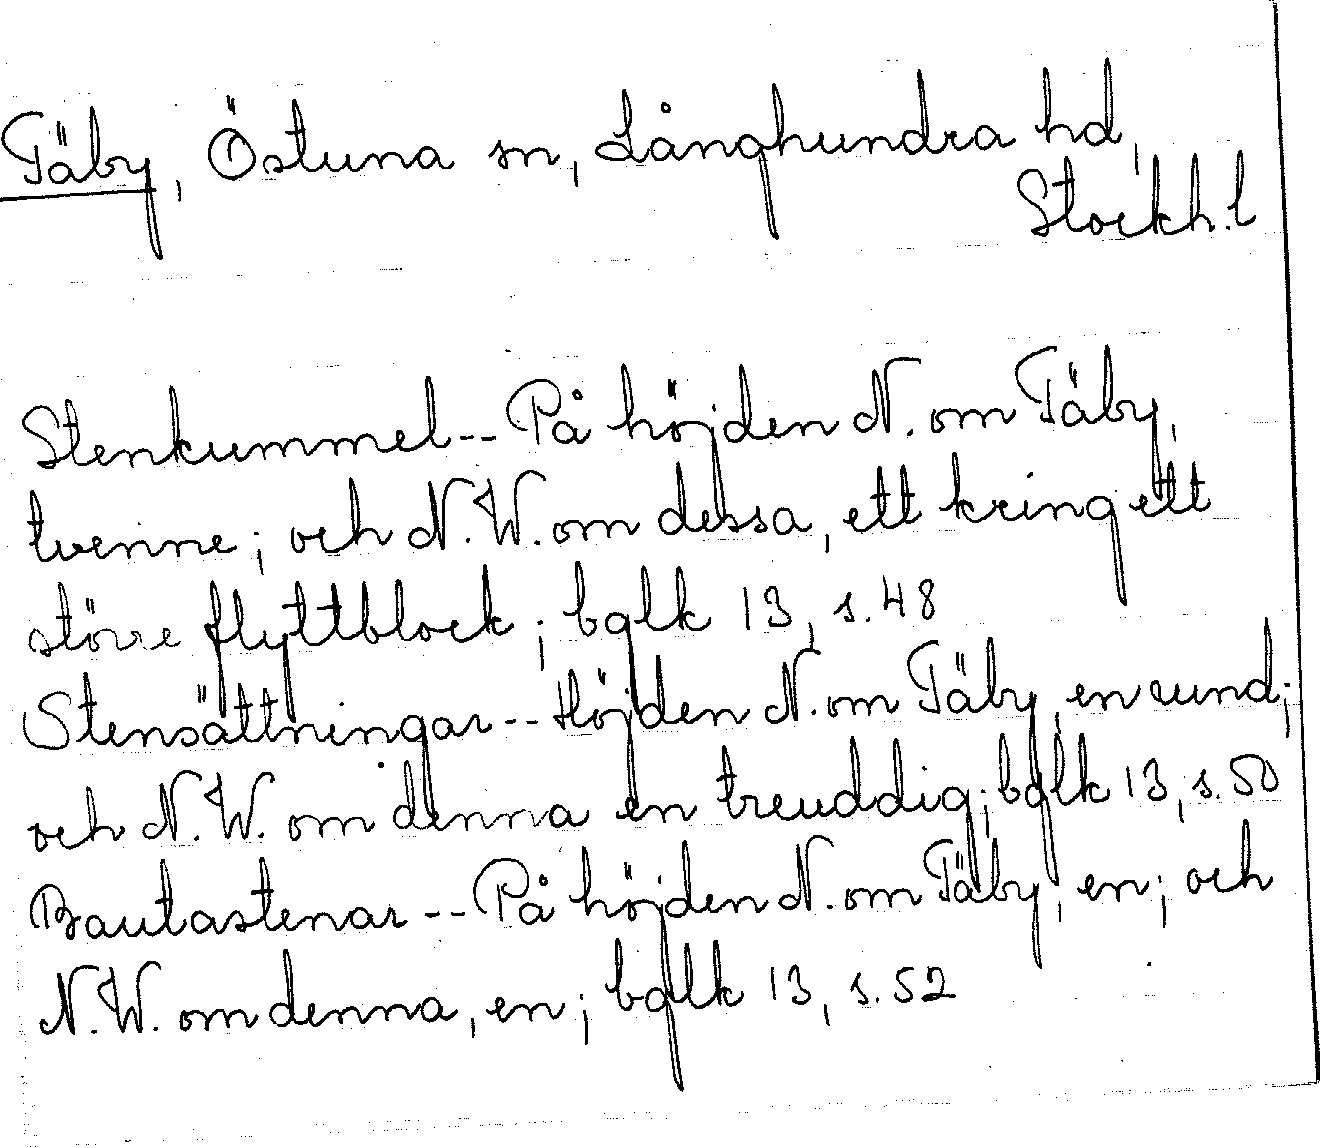 Täby, Östuna sn, Långhundra hd,
Stockh. l
Stenkummel -- På höjden N. om Täby,
tvenne; och N.W. om dessa, ett kring ett
större flyttblock; bglk 13, s. 48
Stensättningar -- Höjden N. om Täby, en rund;
och N.W. om denna en treuddig; bglk 13, s. 50
Bautastenar -- På höjden N. om Täby, en; och
N.W. om denna, en; bglk 13, s. 52